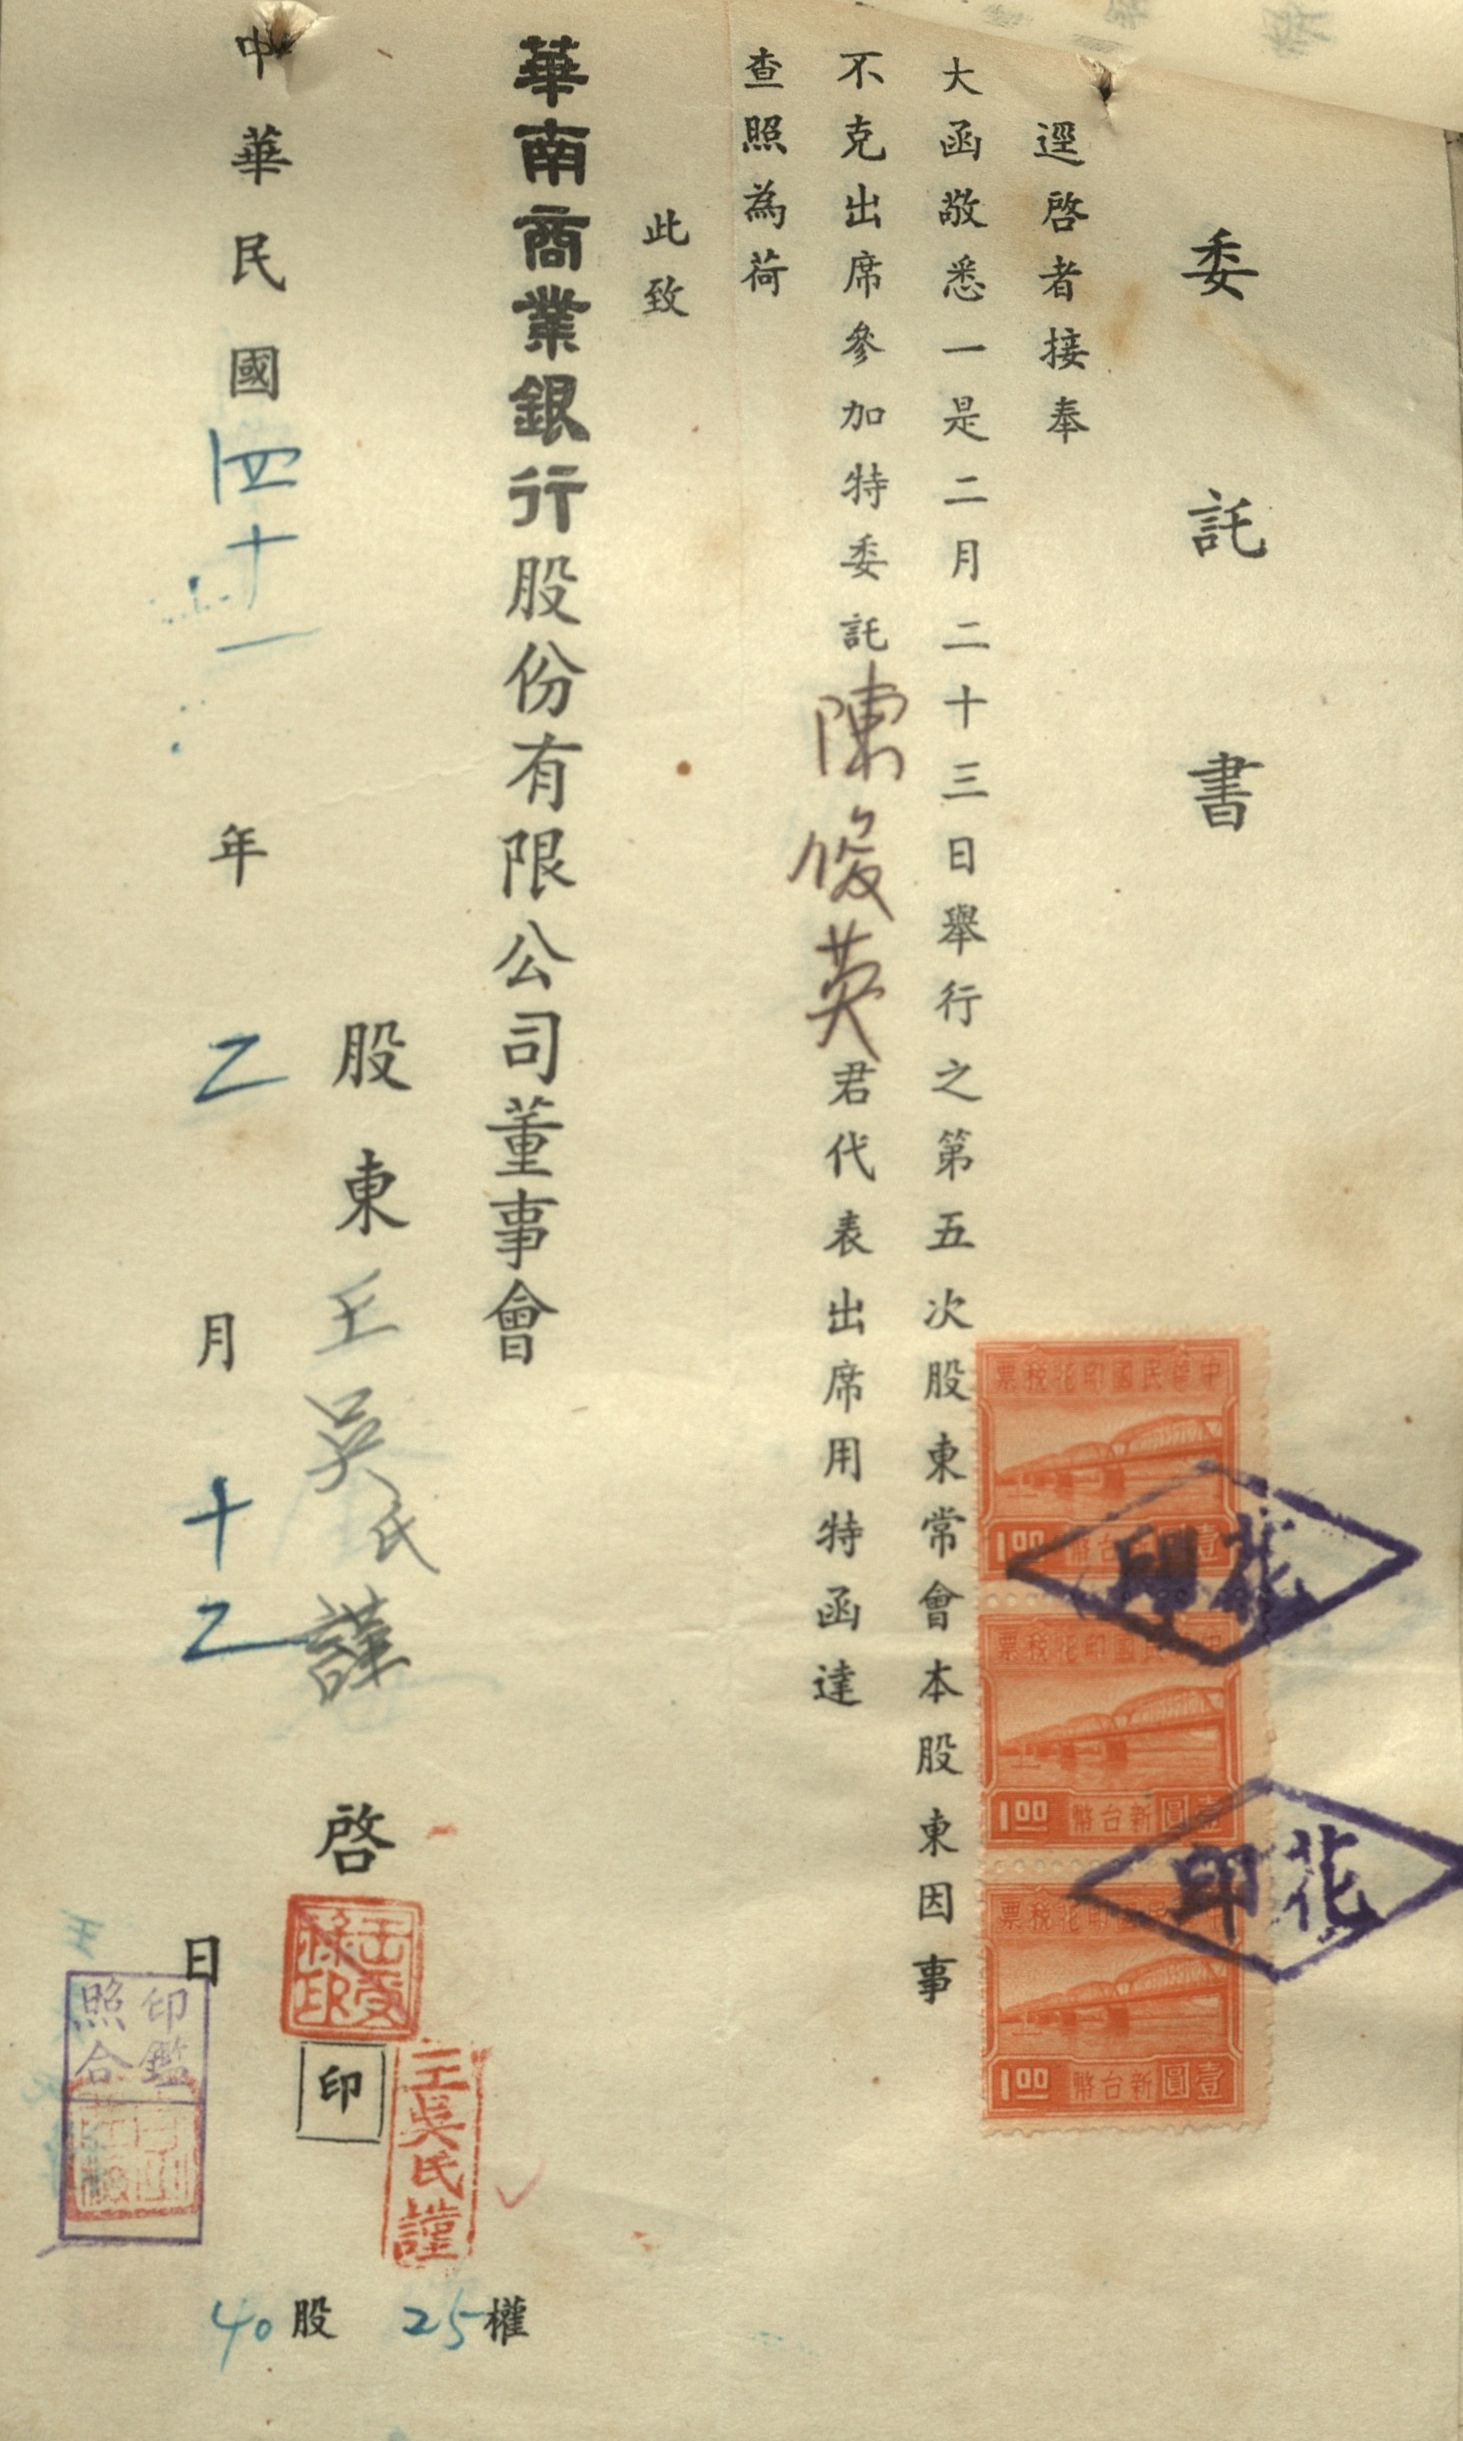 委託書
逕啓者接奉
大函敬悉一是二月二十三日舉行之第五次股東常會本股東因事
不克出席參加特委託陳俊英君代表出席用特函達
查照為荷
此致
華南商業銀行股份有限公司董事會
股東王吳氏謹啓
印
王吳氏謹
中華民國四十一年乙月十乙日
印鑑
照合
40股 25權
中華民國印花稅票
壹圓新台幣
1.00
中華民國印花稅票
壹圓新台幣
1.00
中華民國印花稅票
壹圓新台幣
1.00
花印
花印